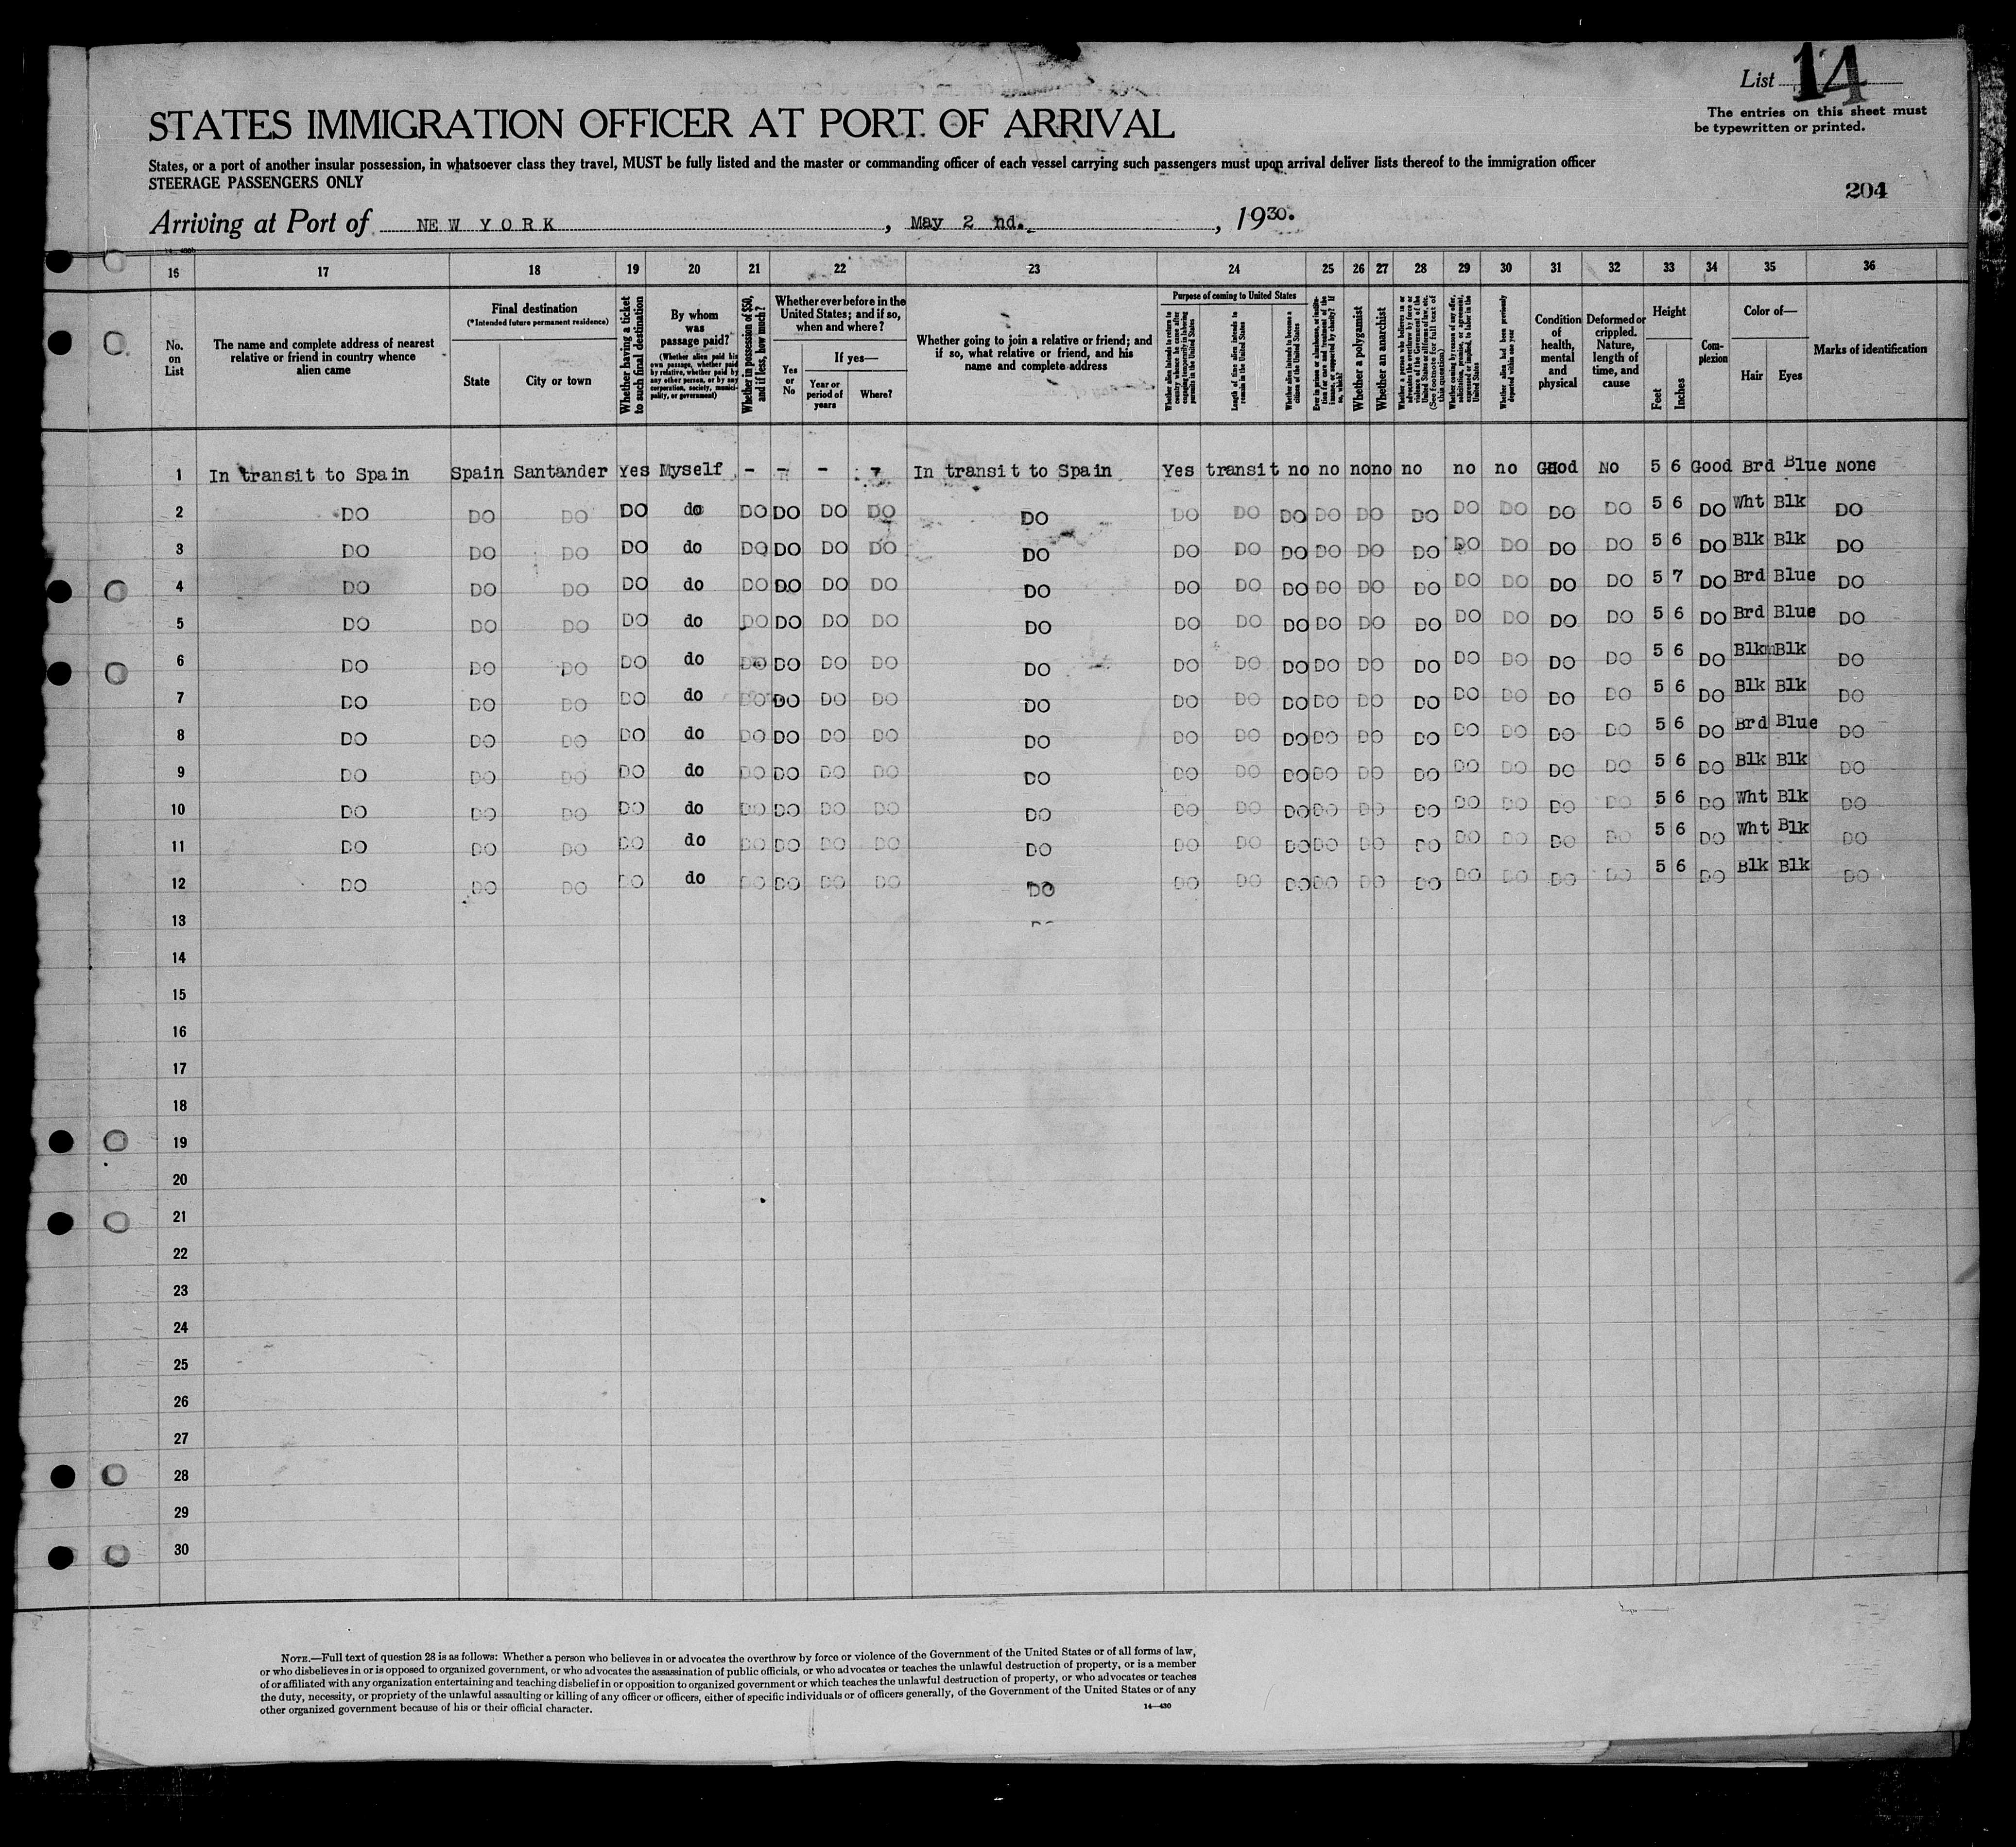 List 14
The entries on this sheet must
be typewritten or printed.
STATES IMMIGRATION OFFICER AT PORT OF ARRIVAL
States, or a port of another insular possession, in whatsoever class they travel, MUST be fully listed and the master or commanding officer of each vessel carrying such passengers must upon arrival deliver lists thereof to the immigration officer
STEERAGE PASSENGERS ONLY
204
Arriving at Port of NEW YORK, May 2 nd., 1930.
16 17 18 19 20 21 22 23 24 25 26 27 28 29 30 31 32 33 34 35 36
No. on List
The name and complete address of nearest relative or friend in country whence alien came
Final destination
(*Intended future permanent residence)
State
City or town
Whether having a ticket to such final destination
By whom was passage paid?
(Whether alien paid his own passage, whether paid by relative, whether paid by any other person, or by any corporation, society, municipality, or government)
Whether in possession of $50, and if less, how much?
Whether ever before in the United States; and if so, when and where?
Yes or No
If yes—
Year or period of years
Where?
Whether going to join a relative or friend; and if so, what relative or friend, and his name and complete address
Purpose of coming to United States
Whether alien intends to return to country whence he came after engaging temporarily in laboring pursuits in the United States
Length of time alien intends to remain in the United States
Whether alien intends to become a citizen of the United States
Ever in prison or almshouse, or institution for care and treatment of the insane, or supported by charity? If so, which?
Whether a polygamist
Whether an anarchist
Whether a person who believes in or advocates the overthrow by force or violence of the Government of the United States or all forms of law, etc. (See footnote for full text of this question)
Whether coming by reason of any offer, solicitation, promise, or agreement, expressed or implied, to labor in the United States
Whether alien had been previously deported within one year
Condition of health, mental and physical
Deformed or crippled. Nature, length of time, and cause
Height
Feet
Inches
Complexion
Color of—
Hair
Eyes
Marks of identification
1 In transit to Spain Spain Santander Yes Myself - - - - In transit to Spain Yes transit no no no no no no no Good No 5 6 Good Brd Blue None
2 DO DO DO DO do DO DO DO DO DO DO DO DO DO DO DO DO DO DO DO 5 6 DO Wht Blk DO
3 DO DO DO DO do DO DO DO DO DO DO DO DO DO DO DO DO DO DO DO 5 6 DO Blk Blk DO
4 DO DO DO DO do DO DO DO DO DO DO DO DO DO DO DO DO DO DO DO 5 7 DO Brd Blue DO
5 DO DO DO DO do DO DO DO DO DO DO DO DO DO DO DO DO DO DO DO 5 6 DO Brd Blue DO
6 DO DO DO DO do DO DO DO DO DO DO DO DO DO DO DO DO DO DO DO 5 6 DO Blk Blk DO
7 DO DO DO DO do DO DO DO DO DO DO DO DO DO DO DO DO DO DO DO 5 6 DO Blk Blk DO
8 DO DO DO DO do DO DO DO DO DO DO DO DO DO DO DO DO DO DO DO 5 6 DO Brd Blue DO
9 DO DO DO DO do DO DO DO DO DO DO DO DO DO DO DO DO DO DO DO 5 6 DO Blk Blk DO
10 DO DO DO DO do DO DO DO DO DO DO DO DO DO DO DO DO DO DO DO 5 6 DO Wht Blk DO
11 DO DO DO DO do DO DO DO DO DO DO DO DO DO DO DO DO DO DO DO 5 6 DO Wht Blk DO
12 DO DO DO DO do DO DO DO DO DO DO DO DO DO DO DO DO DO DO DO 5 6 DO Blk Blk DO
13
14
15
16
17
18
19
20
21
22
23
24
25
26
27
28
29
30
NOTE.—Full text of question 28 is as follows: Whether a person who believes in or advocates the overthrow by force or violence of the Government of the United States or of all forms of law,
or who disbelieves in or is opposed to organized government, or who advocates the assassination of public officials, or who advocates or teaches the unlawful destruction of property, or is a member
of or affiliated with any organization entertaining and teaching disbelief in or opposition to organized government or which teaches the unlawful destruction of property, or who advocates or teaches
the duty, necessity, or propriety of the unlawful assaulting or killing of any officer or officers, either of specific individuals or of officers generally, of the Government of the United States or of any
other organized government because of his or their official character.
14—430